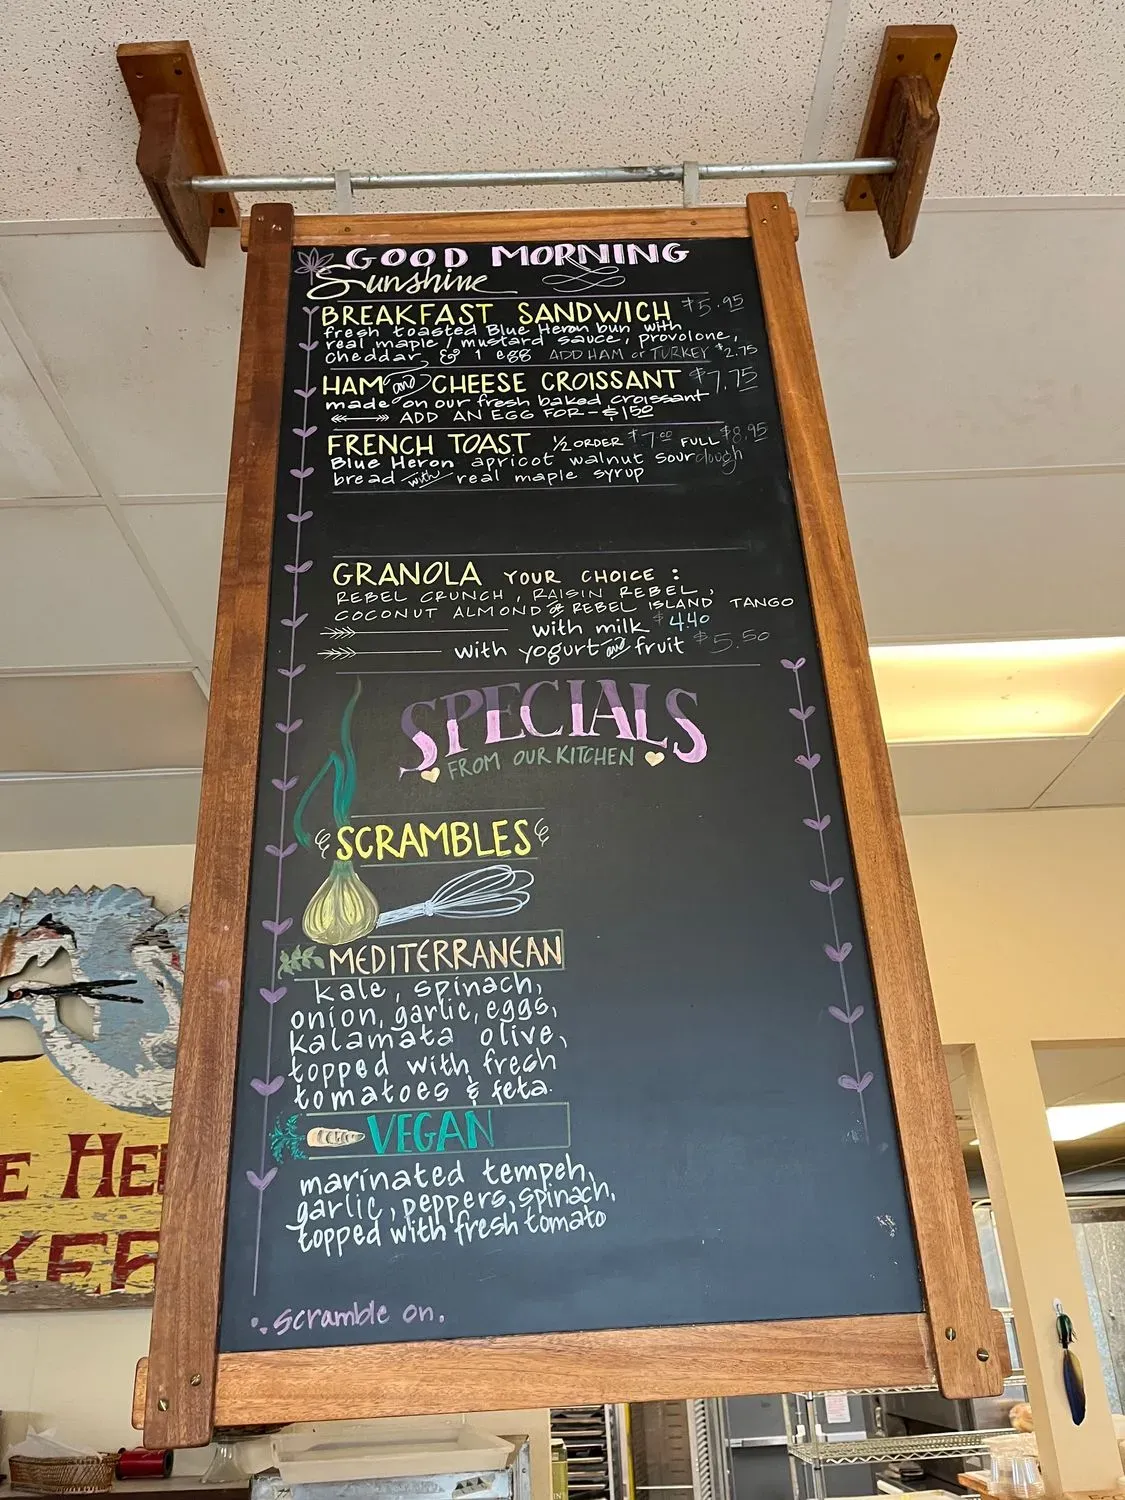 GOOD MORNING
Sunshine
BREAKFAST SANDWICH $5.95
fresh toasted Blue Heron bun with
real maple/mustard sauce, provolone,
cheddar & 1 egg ADD HAM or TURKEY $2.75
HAM and CHEESE CROISSANT $7.75
made on our fresh baked croissant
ADD AN EGG FOR - $1.50
FRENCH TOAST ½ ORDER $7.00 FULL $8.95
Blue Heron apricot walnut sourdough
bread with real maple syrup
GRANOLA YOUR CHOICE :
REBEL CRUNCH, RAISIN REBEL,
COCONUT ALMOND or REBEL ISLAND TANGO
with milk $4.40
with yogurt and fruit $5.50
SPECIALS
FROM OUR KITCHEN
SCRAMBLES
MEDITERRANEAN
kale, spinach,
onion, garlic, eggs,
kalamata olive,
topped with fresh
tomatoes & feta.
VEGAN
marinated tempeh,
garlic, peppers, spinach,
topped with fresh tomato
scramble on.
E HE
KER